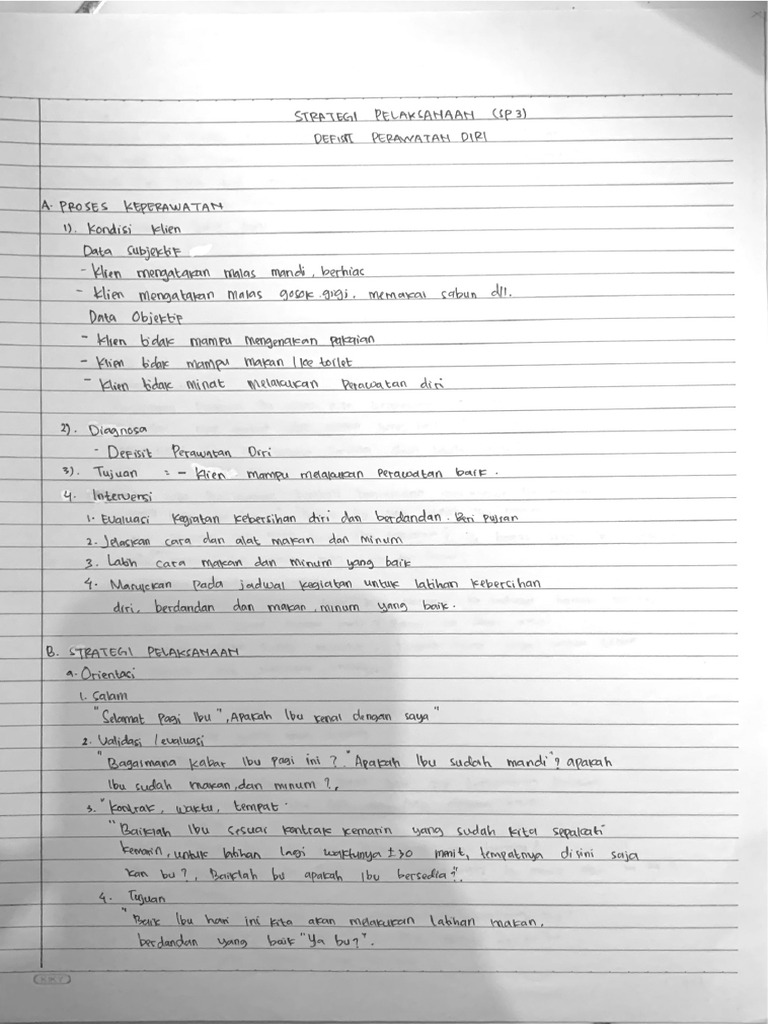 STRATEGI PELAKSANAAN (SP 3)
DEFISIT PERAWATAN DIRI
A. PROSES KEPERAWATAN
1). Kondisi klien
Data Subjektif
- Klien mengatakan malas mandi, berhias
- Klien mengatakan malas gosok gigi, memakai sabun dll.
Data Objektif
- Klien tidak mampu mengenakan pakaian
- Klien tidak mampu makan / ke toilet
- Klien tidak minat melakukan perawatan diri
2). Diagnosa
- Defisit Perawatan Diri
3). Tujuan : - Klien mampu melakukan perawatan baik.
4. Intervensi
1. Evaluasi kegiatan kebersihan diri dan berdandan. Beri pujian
2. Jelaskan cara dan alat makan dan minum
3. Latih cara makan dan minum yang baik
4. Masukkan pada jadwal kegiatan untuk latihan kebersihan
diri, berdandan dan makan, minum yang baik.
B. STRATEGI PELAKSANAAN
a. Orientasi
1. Salam
"Selamat pagi Ibu", Apakah Ibu kenal dengan saya"
2. Validasi / evaluasi
"Bagaimana kabar Ibu pagi ini? "Apakah Ibu sudah mandi"? apakah
Ibu sudah makan, dan minum?,
3. "Kontrak, waktu, tempat.
"Baiklah Ibu sesuai kontrak kemarin yang sudah kita sepakati
kemarin, untuk latihan lagi waktunya ± 30 menit, tempatnya disini saja
kan bu?, Baiklah bu apakah Ibu bersedia?".
4. Tujuan
"Baik Ibu hari ini kita akan melakukan latihan makan,
berdandan yang baik "Ya bu?".
KKY